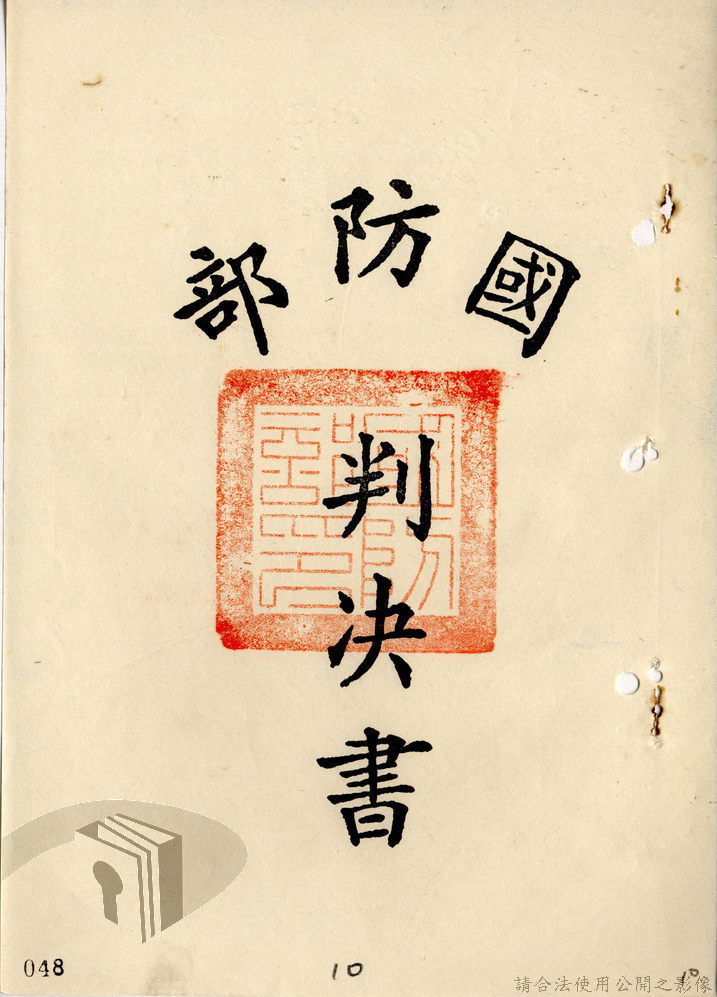 國防部
判決書
048
10
10
請合法使用公開之影像